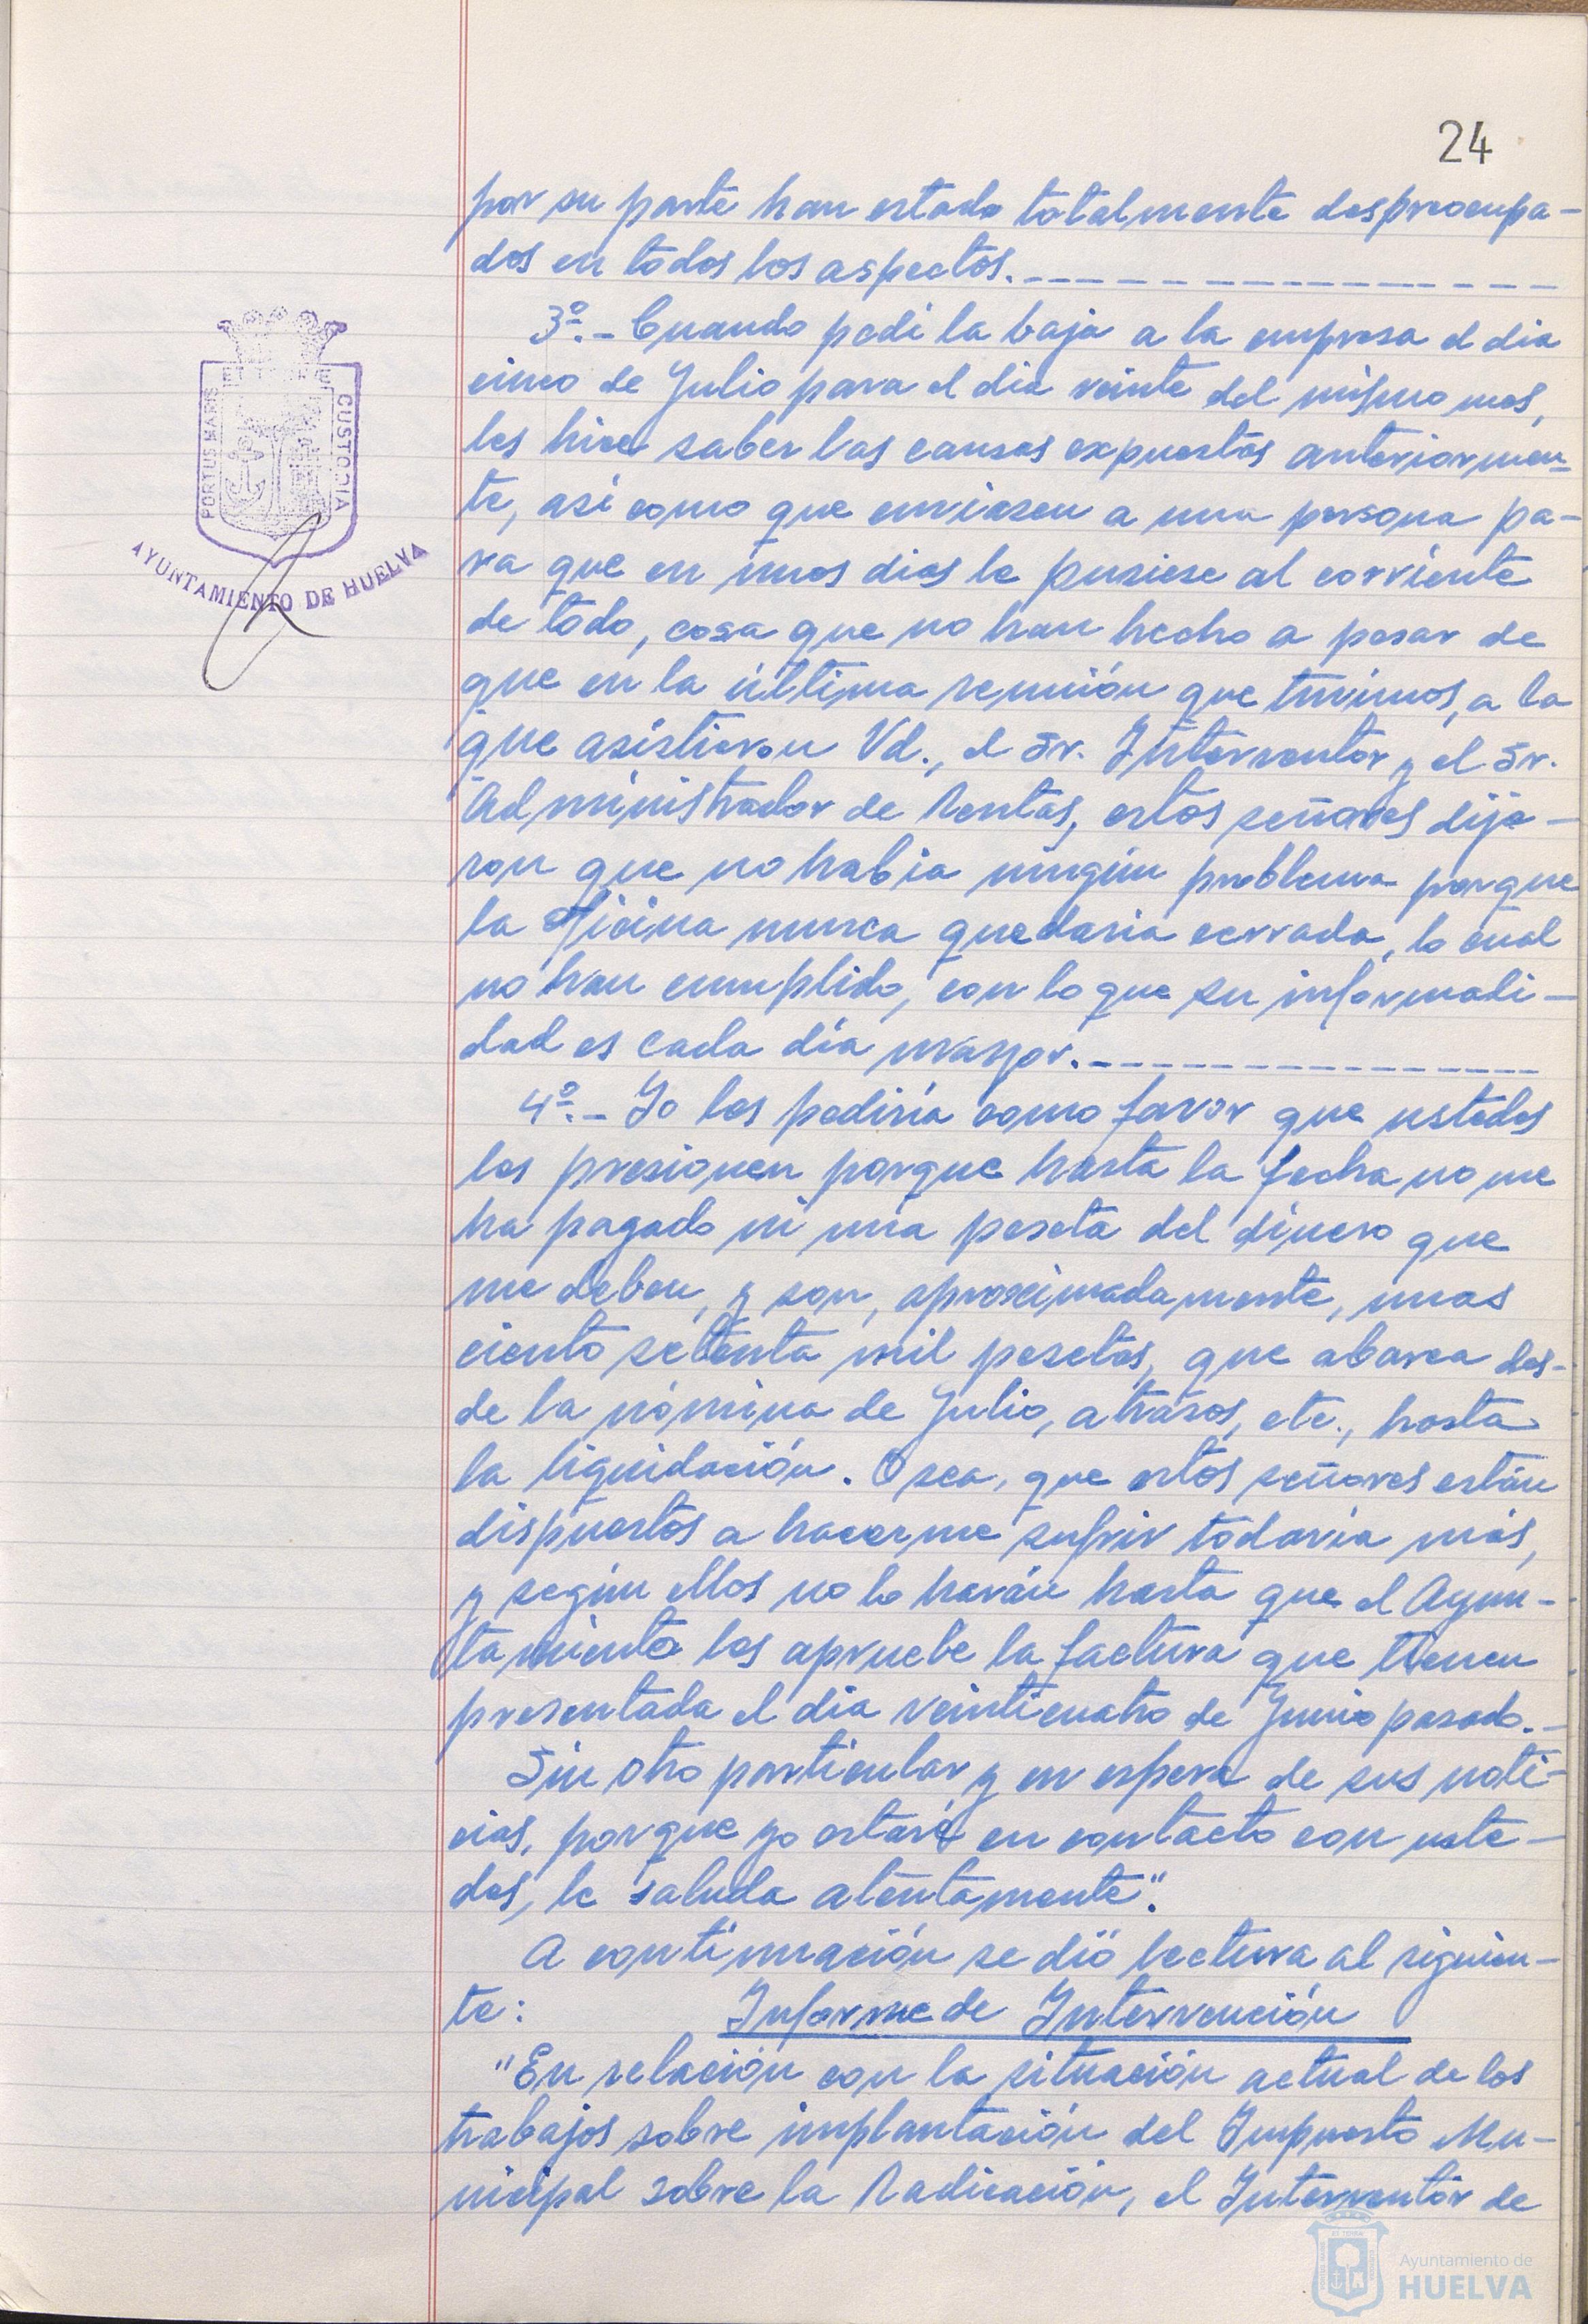 24
por su parte han estado totalmente despreocupa-
dos en todos los aspectos.
3º.- Cuando pedí la baja a la empresa el dia
cinco de Julio para el dia veinte del mismo mes,
les hice saber las causas expuestas anteriormen-
te, así como que enviasen a una persona pa-
ra que en unos dias le pusiese al corriente
de todo, cosa que no han hecho a pesar de
que en la última reunión que tuvimos, a la
que asistieron Vd., el Sr. Interventor y el Sr.
Administrador de Rentas, estos señores dije-
ron que no habia ningún problema porque
la oficina nunca quedaria cerrada, lo cual
no han cumplido, con lo que su informali-
dad es cada día mayor.
4º.- Yo les pediría como favor que ustedes
les presionen porque hasta la fecha no me
ha pagado ni una peseta del dinero que
me deben, y son, aproximadamente, unas
ciento setenta mil pesetas, que abarca des-
de la nómina de Julio, atrasos, etc., hasta
la liquidación. O sea, que estos señores están
dispuestos a hacerme sufrir todavía más,
y según ellos no lo harán hasta que el Ayun-
tamiento les apruebe la factura que tienen
presentada el dia veinticuatro de Junio pasado.-
Sin otro particular y en espera de sus noti-
cias, porque yo estaré en contacto con uste-
des, le saluda atentamente".
A continuación se dió lectura al siguien-
te: Informe de Intervención
"En relación con la situación actual de los
trabajos sobre implantación del Impuesto Mu-
nicipal sobre la Radicación, el Interventor de
PORTUS MARIS ET TERRE CUSTODIA
AYUNTAMIENTO DE HUELVA
Ayuntamiento de
HUELVA